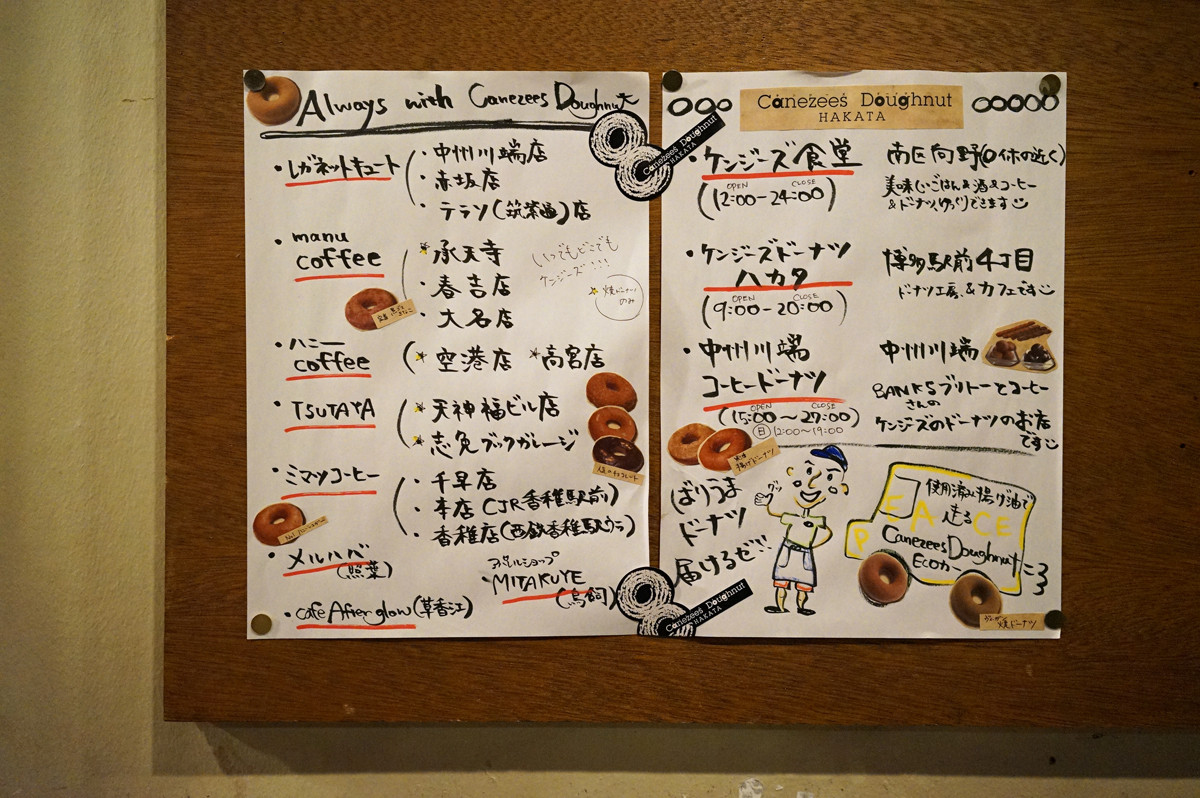 Always with Canezees Doughnut
・レガネットキュート
・中州川端店
・赤坂店
・テラソ(筑紫通)店
・manu
coffee
★承天寺
・春吉店
・大名店
いつでもどこでも
ケンジーズ!!!
★焼ドーナツ
のみ
・ハニー
coffee
★空港店 ★高宮店
・TSUTAYA
★天神福ビル店
★志免ブックガレージ
・ミマツコーヒー
・千早店
・本店(JR香椎駅前)
・香椎店(西鉄香椎駅ウラ)
・メルハバ
(照葉)
・MITAKUYE
(鳥飼)
・cafe Afterglow(草香江)
Canezees Doughnut
HAKATA
Canezees Doughnut
HAKATA
・ケンジーズ食堂
OPEN CLOSE
(12:00-24:00)
南区向野(〇休の近く)
美味しいごはん&酒&コーヒー
&ドーナツ、ゆっくりできます
・ケンジーズドーナツ
ハカタ
OPEN CLOSE
(9:00-20:00)
博多駅前4丁目
ドーナツ工房、&カフェです
・中州川端
コーヒードーナツ
OPEN CLOSE
(15:00~27:00)
(日)12:00~19:00
中州川端
BANKSブリトーとコーヒー
さんの
ケンジーズのドーナツのお店
です
揚げドーナツ
ばりうま
ドーナツ
届けるぜ!!
グッ
使用済み揚げ油で
走る
PEACE
Canezees Doughnut
ECOカー
焼ドーナツ
Canezees Doughnut
HAKATA